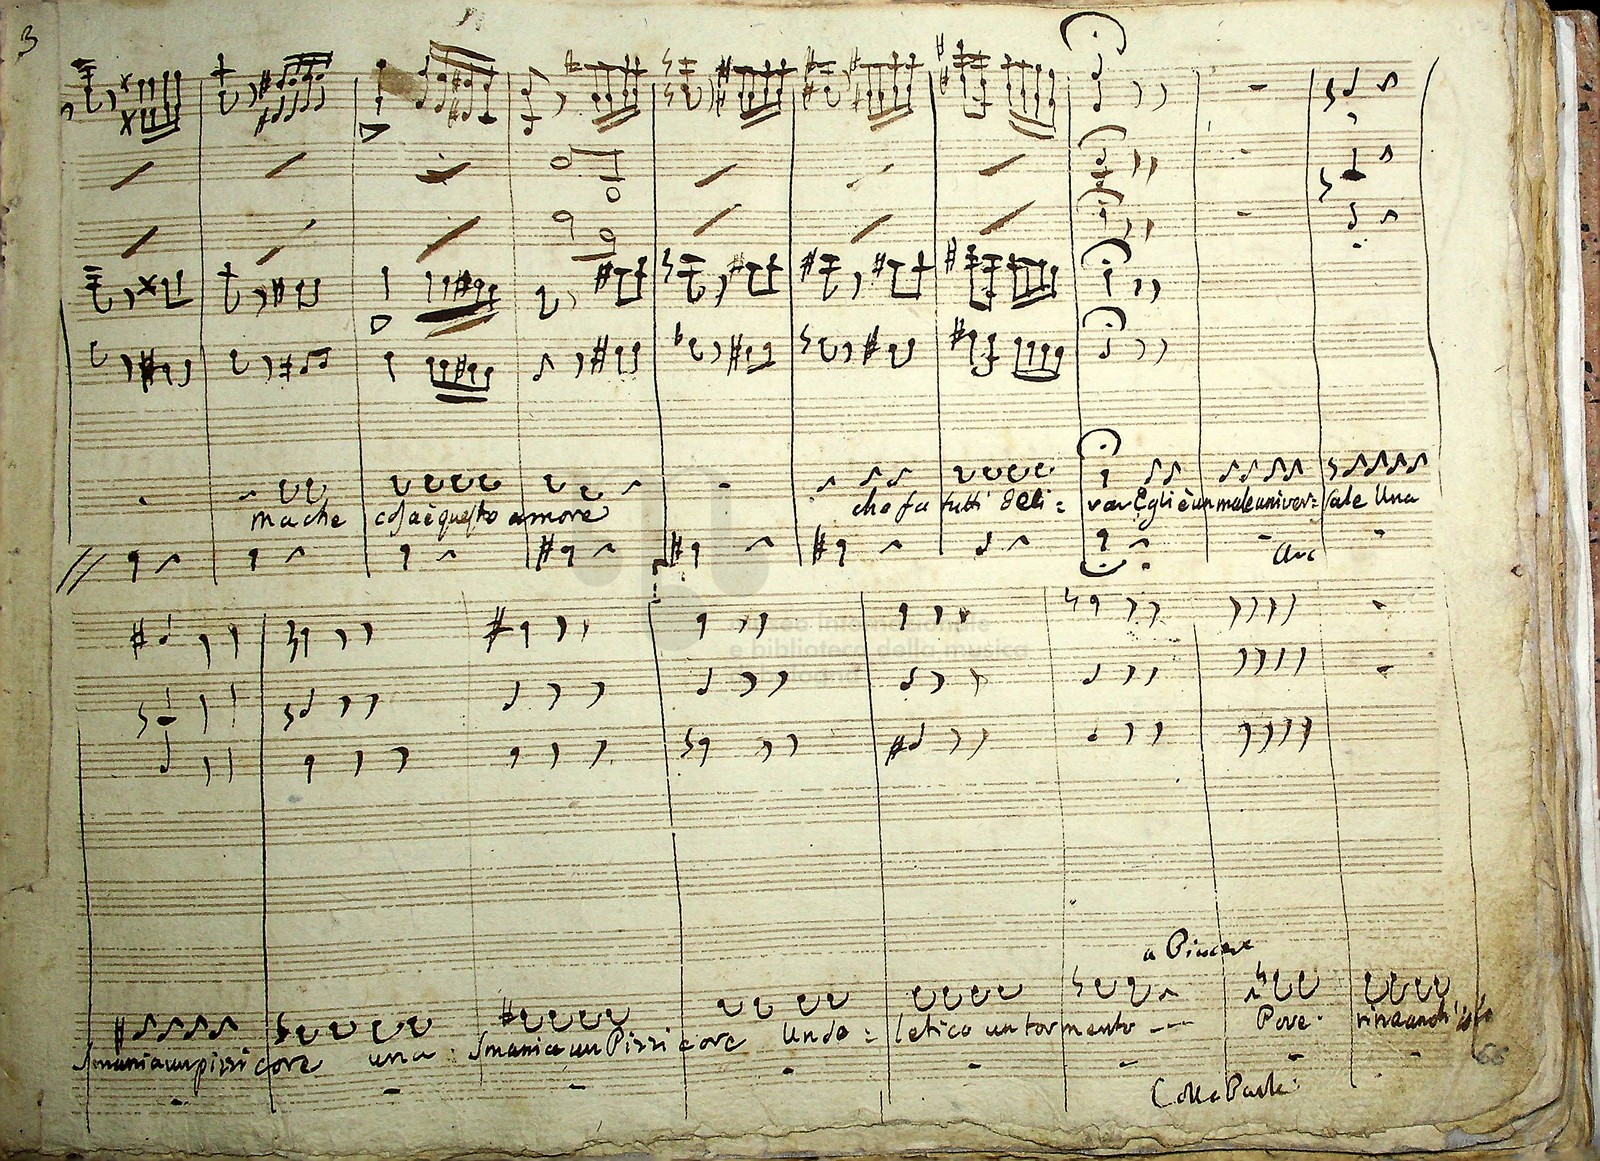 3
ma che cosa è questo amore che fa tutti deli = rar Egli è un male univer = sale Una
Arc
Museo internazionale
e biblioteca della musica
di bologna
a Piacere
smania un pizzi core una smania un Pizzi core Un do = letico un tormento --- Pove = rina anch'io
66
Colla Parte